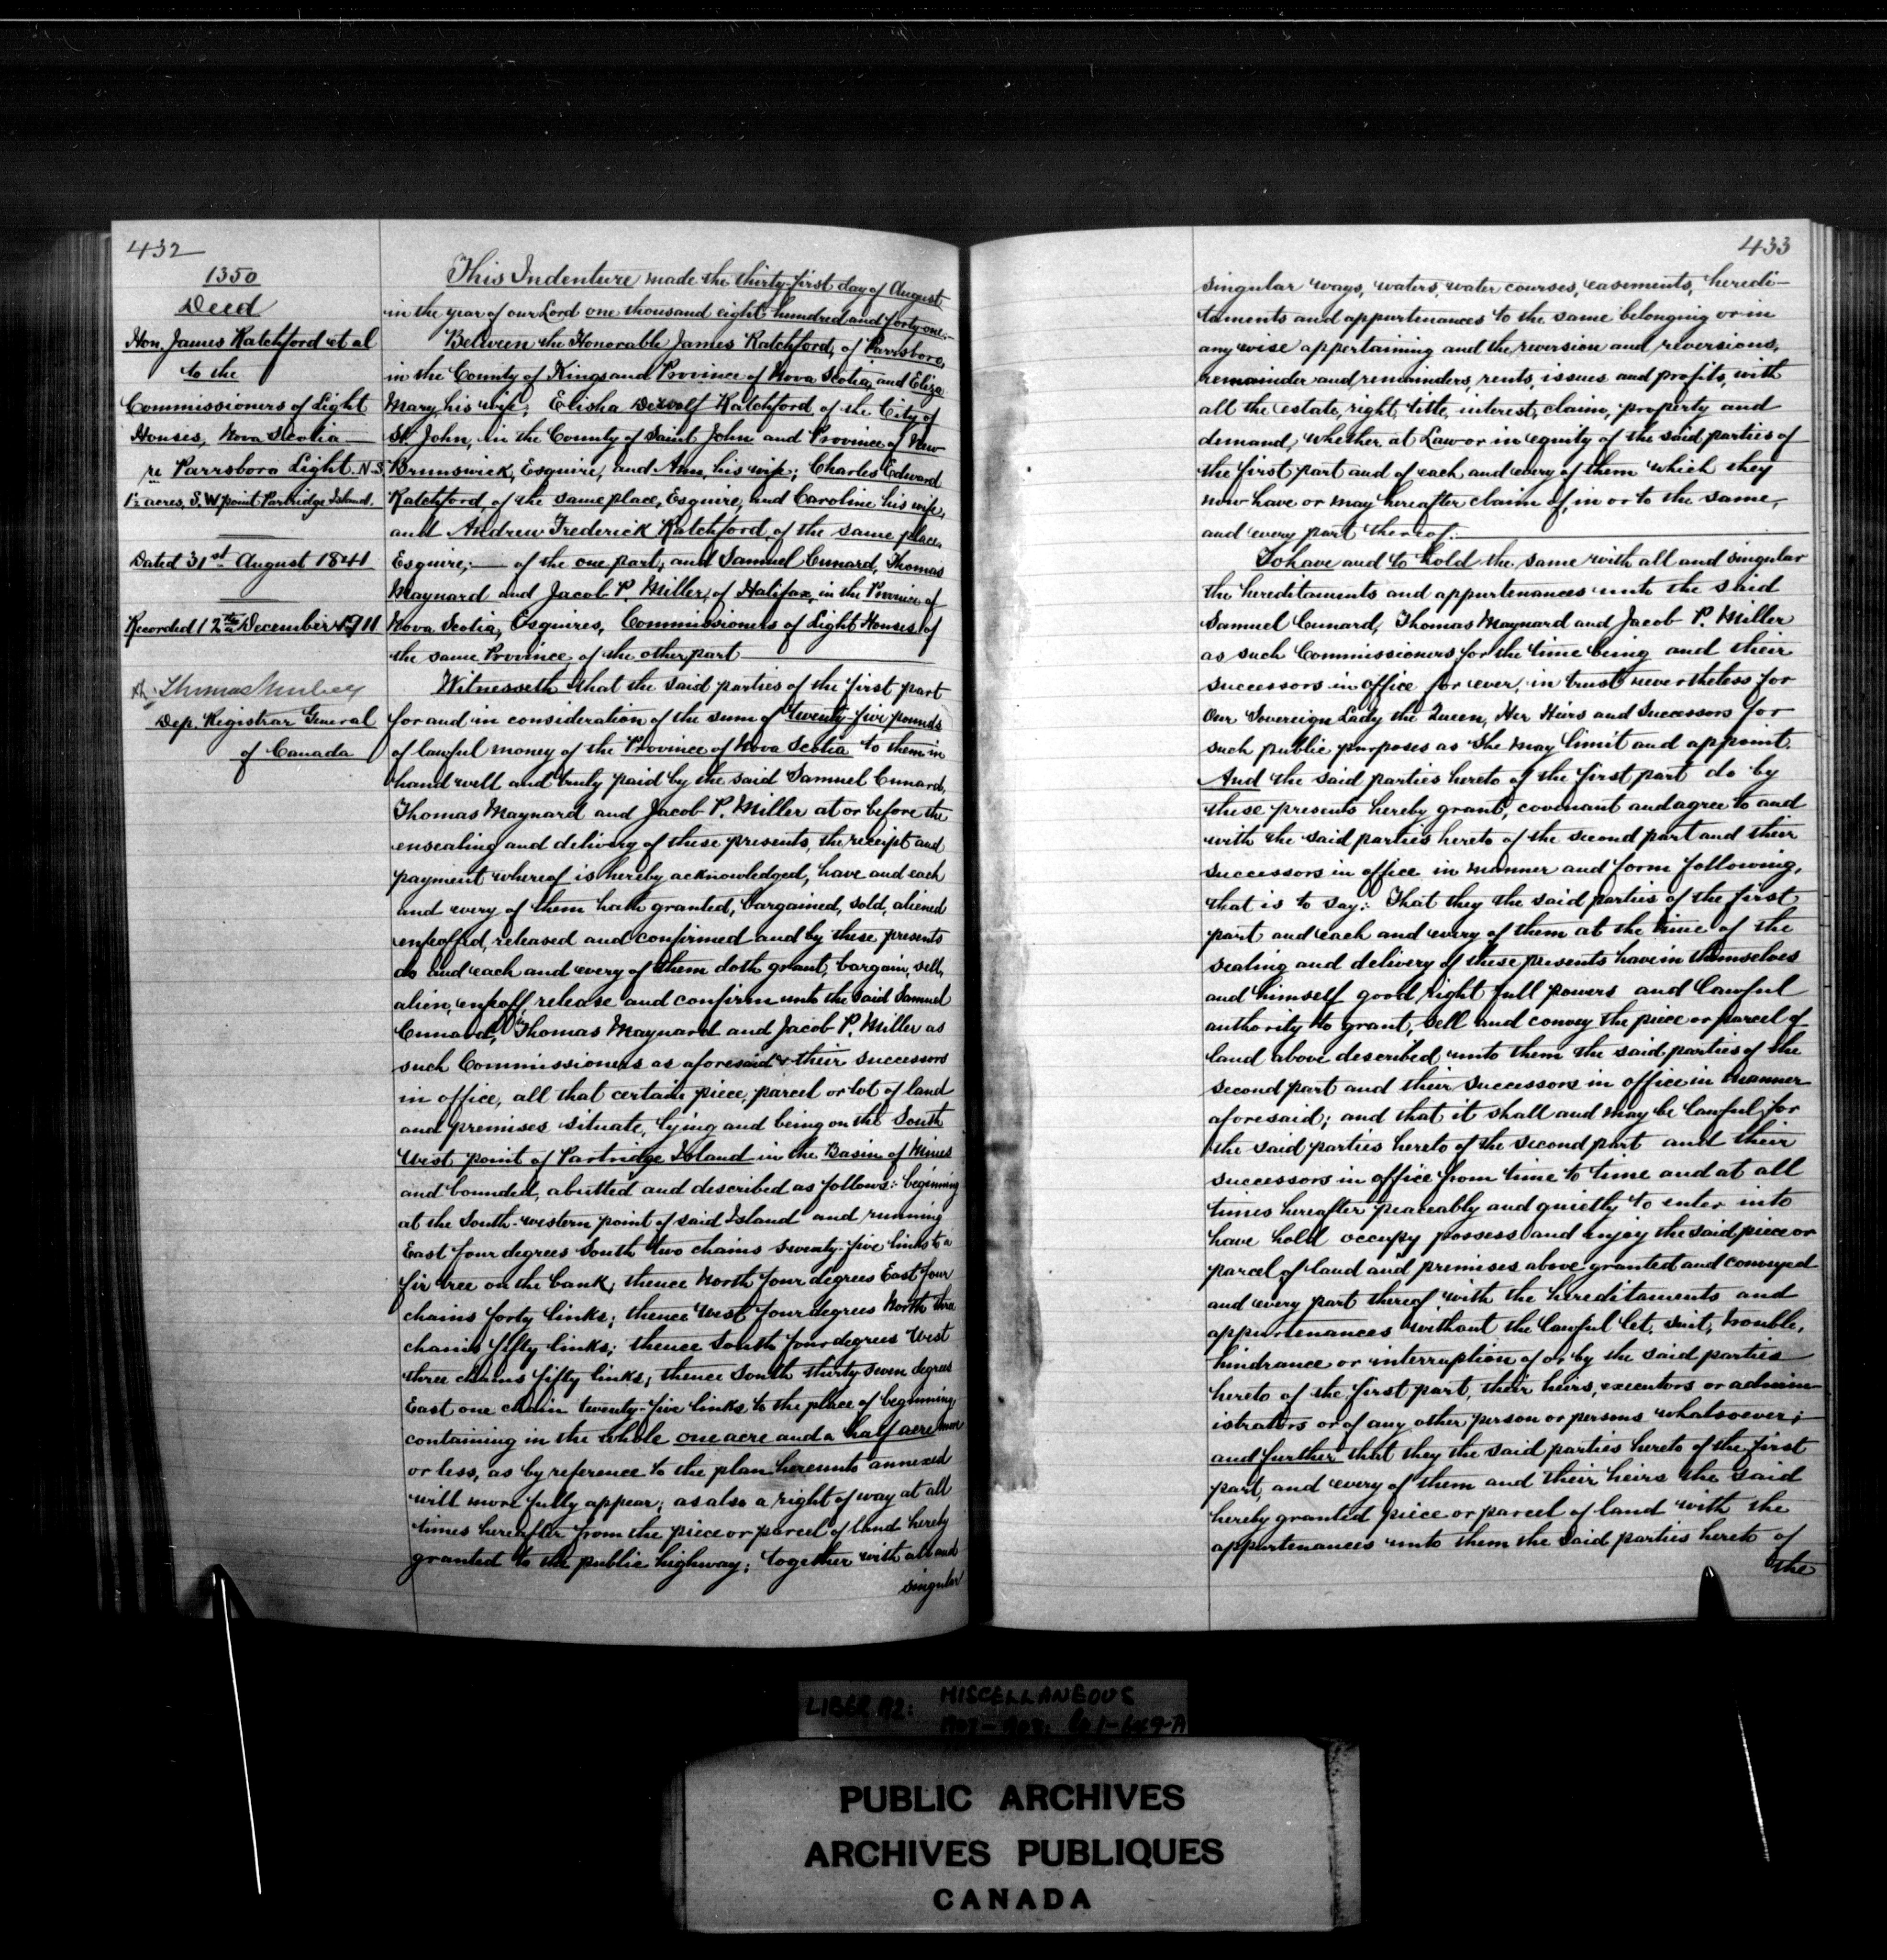 432
1350
Deed
Hon. James Ratchford et al
to the
Commissioners of Light
Houses, Nova Scotia
re Parrsboro Light. N.S.
1½ acres, S.W point Partridge Island.
Dated 31st August 1841
Recorded 12th December 1911
Dep. Registrar General
of Canada
This Indenture made the thirty-first day of August
in the year of our Lord one thousand eight hundred and forty one:
Between the Honorable James Ratchford, of Parrsboro,
in the County of Kings and Province of Nova Scotia, and Eliza
Mary, his wife; Elisha DeWolf Ratchford of the City of
St. John, in the County of Saint John and Province of New
Brunswick, Esquire, and Ann, his wife; Charles Edward
Ratchford, of the same place, Esquire, and Caroline his wife,
and Andrew Frederick Ratchford, of the same place,
Esquire; — of the one part, and Samuel Cunard, Thomas
Maynard and Jacob P. Miller, of Halifax, in the Province of
Nova Scotia, Esquires, Commissioners of Light Houses of
the same Province, of the other part
Witnesseth that the said parties of the first part
for and in consideration of the sum of twenty-five pounds
of lawful money of the Province of Nova Scotia to them in
hand well and truly paid by the said Samuel Cunard,
Thomas Maynard and Jacob P. Miller at or before the
ensealing and delivery of these presents, the receipt and
payment whereof is hereby acknowledged, have and each
and every of them hath granted, bargained, sold, aliened
enfeoffed, released and confirmed and by these presents
do and each and every of them doth grant, bargain, sell,
alien, enfeoff, release and confirm unto the said Samuel
Cunard, Thomas Maynard and Jacob P. Miller as
such Commissioners as aforesaid & their successors
in office, all that certain piece, parcel or lot of land
and premises situate, lying and being on the South
West point of Partridge Island in the Basin of Mines
and bounded, abutted and described as follows:- beginning
at the South-western point of said Island and running
East four degrees South two chains seventy-five links to a
fir tree on the bank; thence North four degrees East four
chains forty links; thence West four degrees North three
chains fifty links; thence South four degrees West
three chains fifty links; thence South thirty seven degrees
East one chain twenty-five links to the place of beginning,
containing in the whole one acre and a half acre more
or less, as by reference to the plan hereunto annexed
will more fully appear; as also a right of way at all
times hereafter from the piece or parcel of land hereby
granted to the public highway; together with all and
singular
433
singular ways, waters, water courses, easements, heredi-
taments and appurtenances to the same belonging or in
any wise appertaining and the reversion and reversions,
remainder and remainders, rents, issues and profits, with
all the estate, right, title, interest, claim, property and
demand, whether at Law or in equity of the said parties of
the first part and of each and every of them which they
now have or may hereafter claim of, in or to the same,
and every part thereof.
To have and to hold the same with all and singular
the hereditaments and appurtenances unto the said
Samuel Cunard, Thomas Maynard and Jacob P. Miller
as such Commissioners for the time being and their
successors in office for ever, in trust nevertheless for
Our Sovereign Lady the Queen, Her Heirs and Successors for
such public purposes as She may limit and appoint.
And the said parties hereto of the first part do by
these presents hereby grant, covenant and agree to and
with the said parties hereto of the second part and their
successors in office in manner and form following,
that is to say: That they the said parties of the first
part and each and every of them at the time of the
sealing and delivery of these presents have in themselves
and himself good right full powers and lawful
authority to grant, sell and convey the piece or parcel of
land above described unto them the said parties of the
second part and their successors in office in manner
aforesaid; and that it shall and may be lawful for
the said parties hereto of the second part and their
successors in office from time to time and at all
times hereafter peaceably and quietly to enter into
have hold occupy possess and enjoy the said piece or
parcel of land and premises above granted and conveyed
and every part thereof with the hereditaments and
appurtenances without the lawful let, suit, trouble,
hindrance or interruption of or by the said parties
hereto of the first part, their heirs, executors or admin-
istrators or of any other person or persons whatsoever;
and further that they the said parties hereto of the first
part, and every of them and their heirs the said
hereby granted piece or parcel of land with the
appurtenances unto them the said parties hereto of
the
LIBER A2: MISCELLANEOUS
PUBLIC ARCHIVES
ARCHIVES PUBLIQUES
CANADA